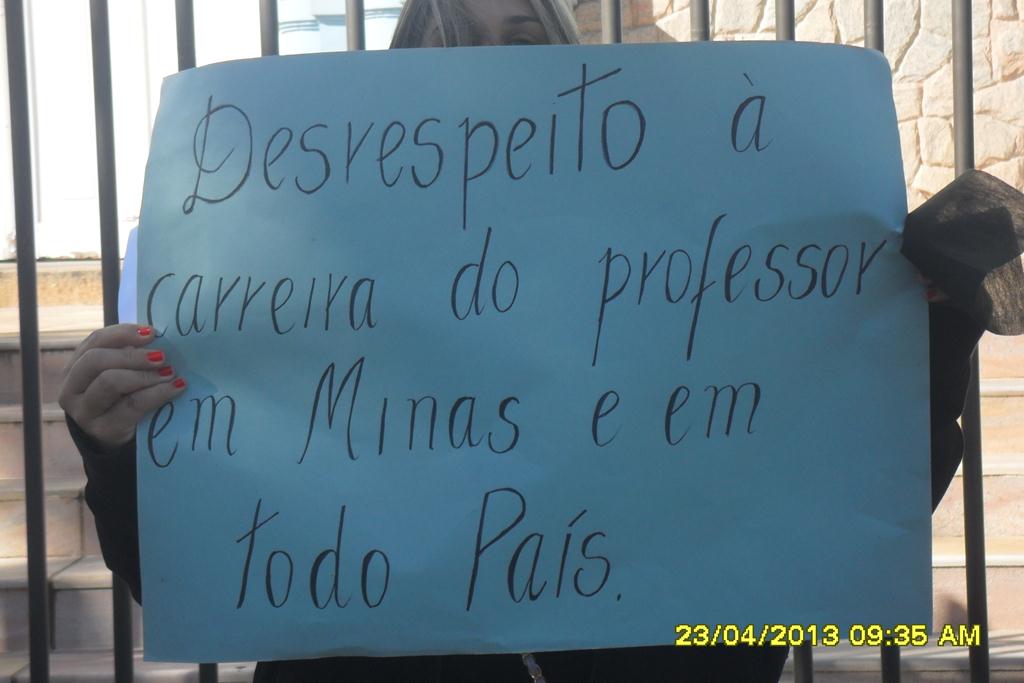 Desrespeito à
carreira do professor
em Minas e em
todo País.
23/04/2013 09:35 AM